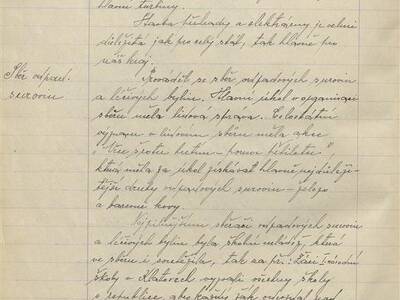 Vlastní turbiny.
Stavba přehrady a elektrárny je velmi
důležitá jak pro celý stát, tak hlavně pro
náš kraj.
Sběr odpad.
surovin
Prováděl se sběr odpadových surovin
a léčivých bylin. Hlavní úkol v organisaci
sběru měla lidová správa. Celostátní
význam v lidovém sběru měla akce
šrotu hutím - pomoc pětiletce",
která měla za úkol získávat hlavně nejdůleži-
tější druhy odpadových surovin - železo
a barevné kovy.
Nejpilnějším sběračem odpadových surovin
a léčivých bylin byla školní mládež, která
ve sběru i soutěžila, tak na př.: Žáci I národní
školy v Klatovech vyzvali všechny školy
v republice, aby každý žák odevzdal